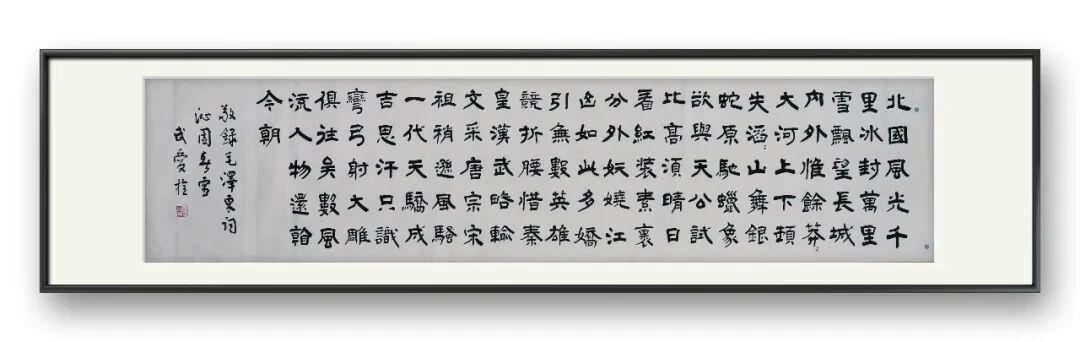 北國風光千
里冰封萬里
雪飄望長城
内外惟餘莽
大河上下頓
失滔山舞銀
蛇原馳蠟象
欲與天公試
比高須晴日
看紅裝素裹
分外妖嬈江
山如此多嬌
引無數英雄
競折腰惜秦
皇漢武略輸
文采唐宗宋
祖稍遜風騷
一代天驕成
吉思汗只識
彎弓射大雕
俱往矣數風
流人物還
今朝
敬錄毛澤東詞
沁園春雪
武愛